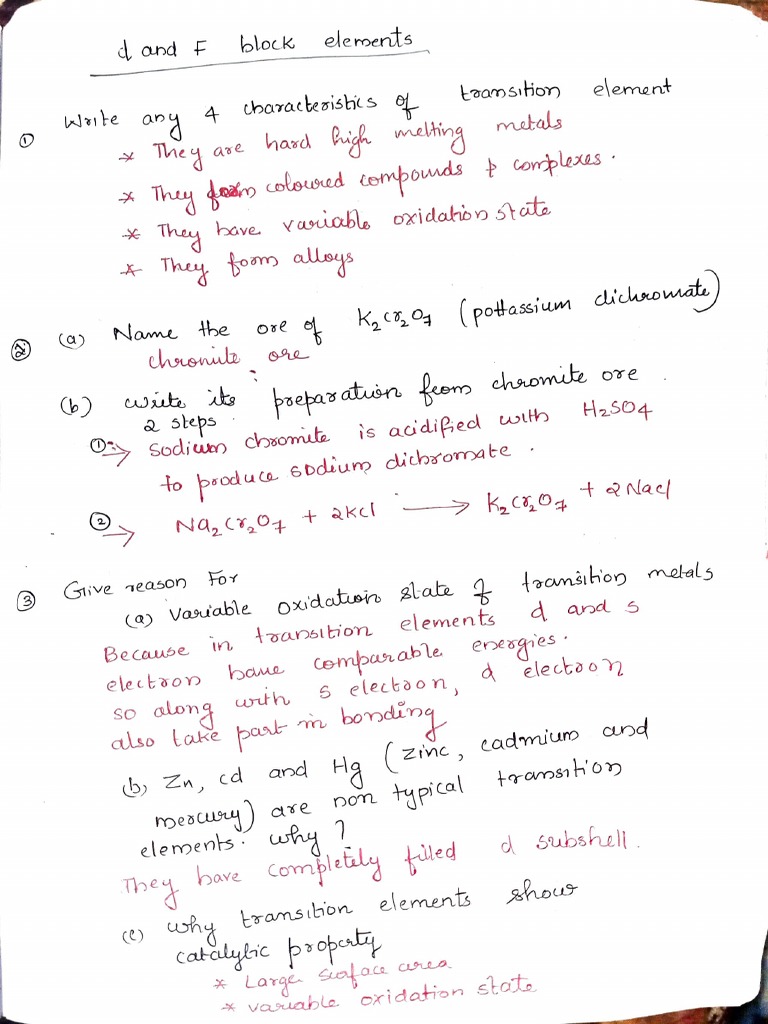 d and F block elements
① Write any 4 characteristics of transition element
* They are hard high melting metals
* They form coloured compounds & complexes.
* They have variable oxidation state
* They form alloys
② (a) Name the ore of K2Cr2O7 (pottassium dichromate)
chromite ore
(b) write its preparation from chromite ore.
2 steps
①→ Sodium chromite is acidified with H2SO4
to produce sodium dichromate.
②→ Na2Cr2O7 + 2KCl → K2Cr2O7 + 2NaCl
③ Give reason For
(a) Variable oxidation state of transition metals
Because in transition elements d and s
electron have comparable energies.
so along with s electron, d electron
also take part in bonding
(b) Zn, cd and Hg (zinc, cadmium and
mercury) are non typical transition
elements. why?
They have completely filled d subshell.
(c) why transition elements show
catalytic property
* Large surface area
* variable oxidation state